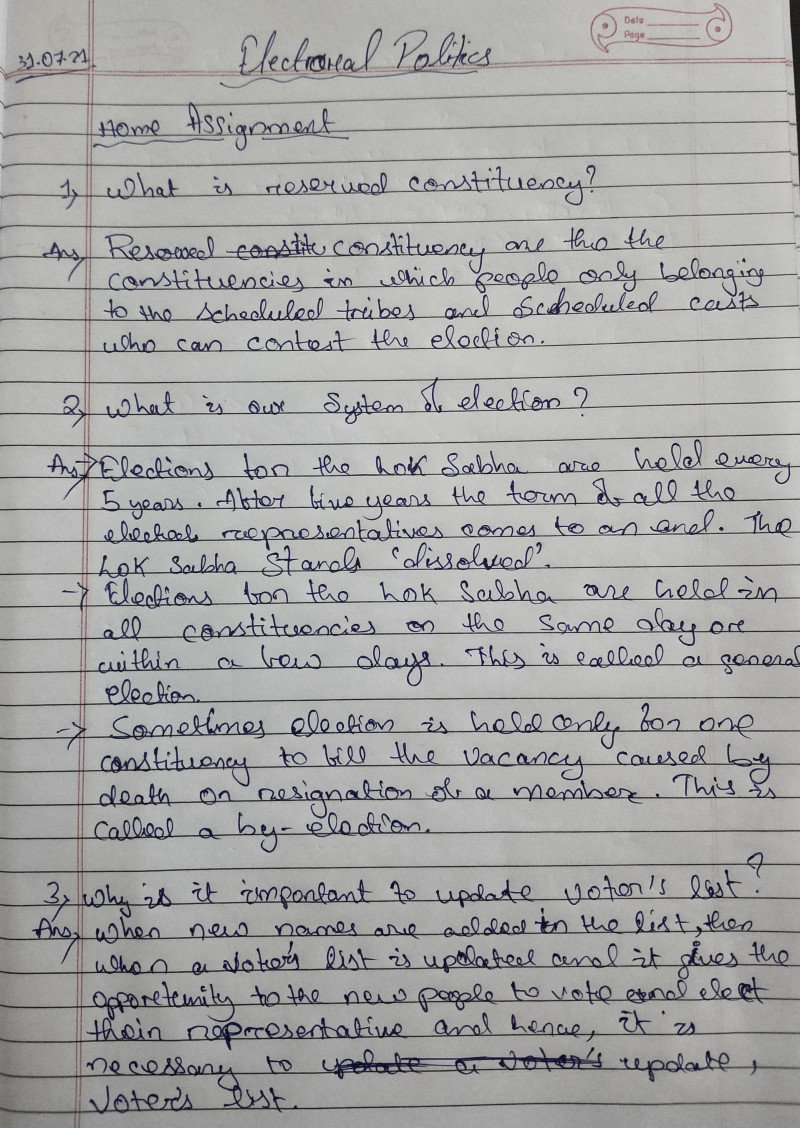 Date
Page
31.07.21
Electoreal Politics
Home Assignment
1, What is reserved constituency?
Ans, Reserved constitu constituency are tho the
constituencies in which people only belonging
to the scheduled tribes and Scheduled casts
who can contest the election.
2, What is our System of election?
Ans,→ Elections for the Lok Sabha are held every
5 years. After five years the term of all the
elected representatives comes to an end. The
Lok Sabha Stands 'dissolved'.
→ Elections for the Lok Sabha are held in
all constituencies on the same day or
within a few days. This is called a general
election.
→ Sometimes election is held only for one
constituency to fill the vacancy caused by
death or resignation of a member. This is
called a by-election.
3, Why is it important to update voter's list?
Ans, When new names are added in the list, then
when a voter's list is updated and it gives the
opportunity to the new people to vote and elect
their representative and hence, it is
necessary to update a voter's update,
voter's list.